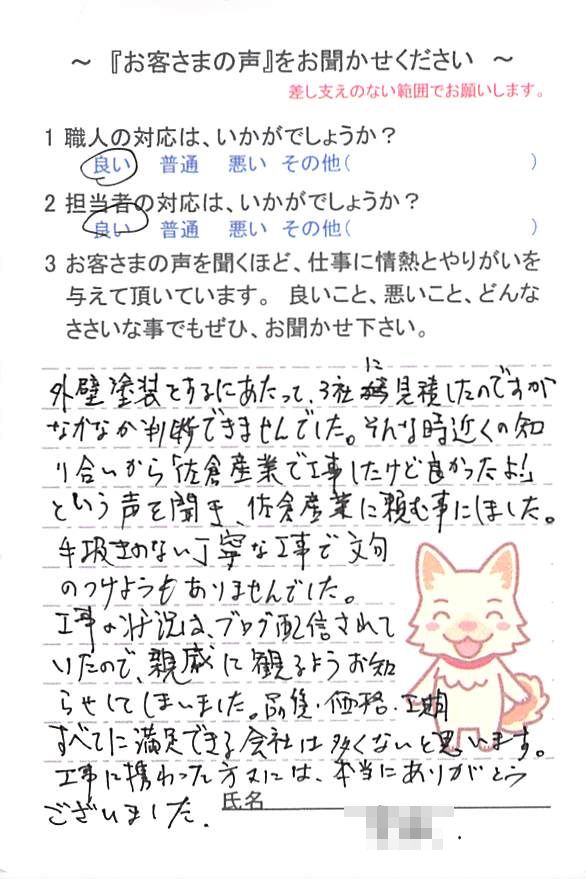 ～ 『お客さまの声』をお聞かせください ～
差し支えのない範囲でお願いします。
1 職人の対応は、いかがでしょうか？
良い 普通 悪い その他( )
2 担当者の対応は、いかがでしょうか？
良い 普通 悪い その他( )
3 お客さまの声を聞くほど、仕事に情熱とやりがいを
与えて頂いています。 良いこと、悪いこと、どんな
ささいな事でもぜひ、お聞かせ下さい。
外壁塗装をするにあたって、3社に見積したのですが
なかなか判断できませんでした。そんな時近くの知
り合いから「佐倉産業で工事したけど良かったよ!」
という声を聞き、佐倉産業に頼む事にしました。
手抜きのない丁寧な工事で文句
のつけようもありませんでした。
工事の状況は、ブログ配信されて
いたので、親戚に観るようお知
らせしてしまいました。品質・価格・工期
すべてに満足できる会社は多くないと思います。
工事に携わった方々には、本当にありがとう
ございました.
氏名